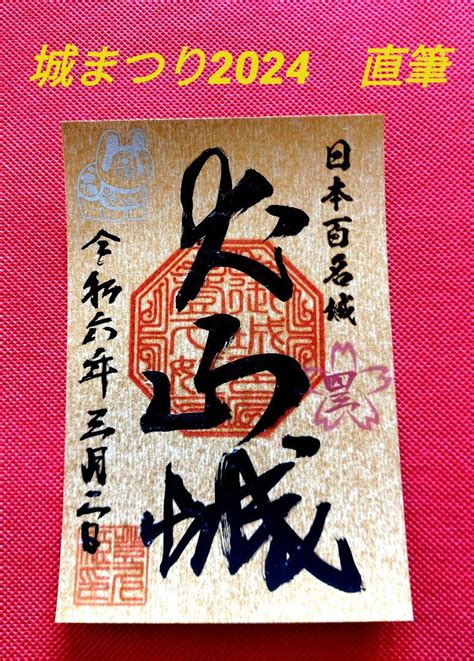 城まつり2024　直筆
日本百名城
四三
犬山城
令和六年三月二日